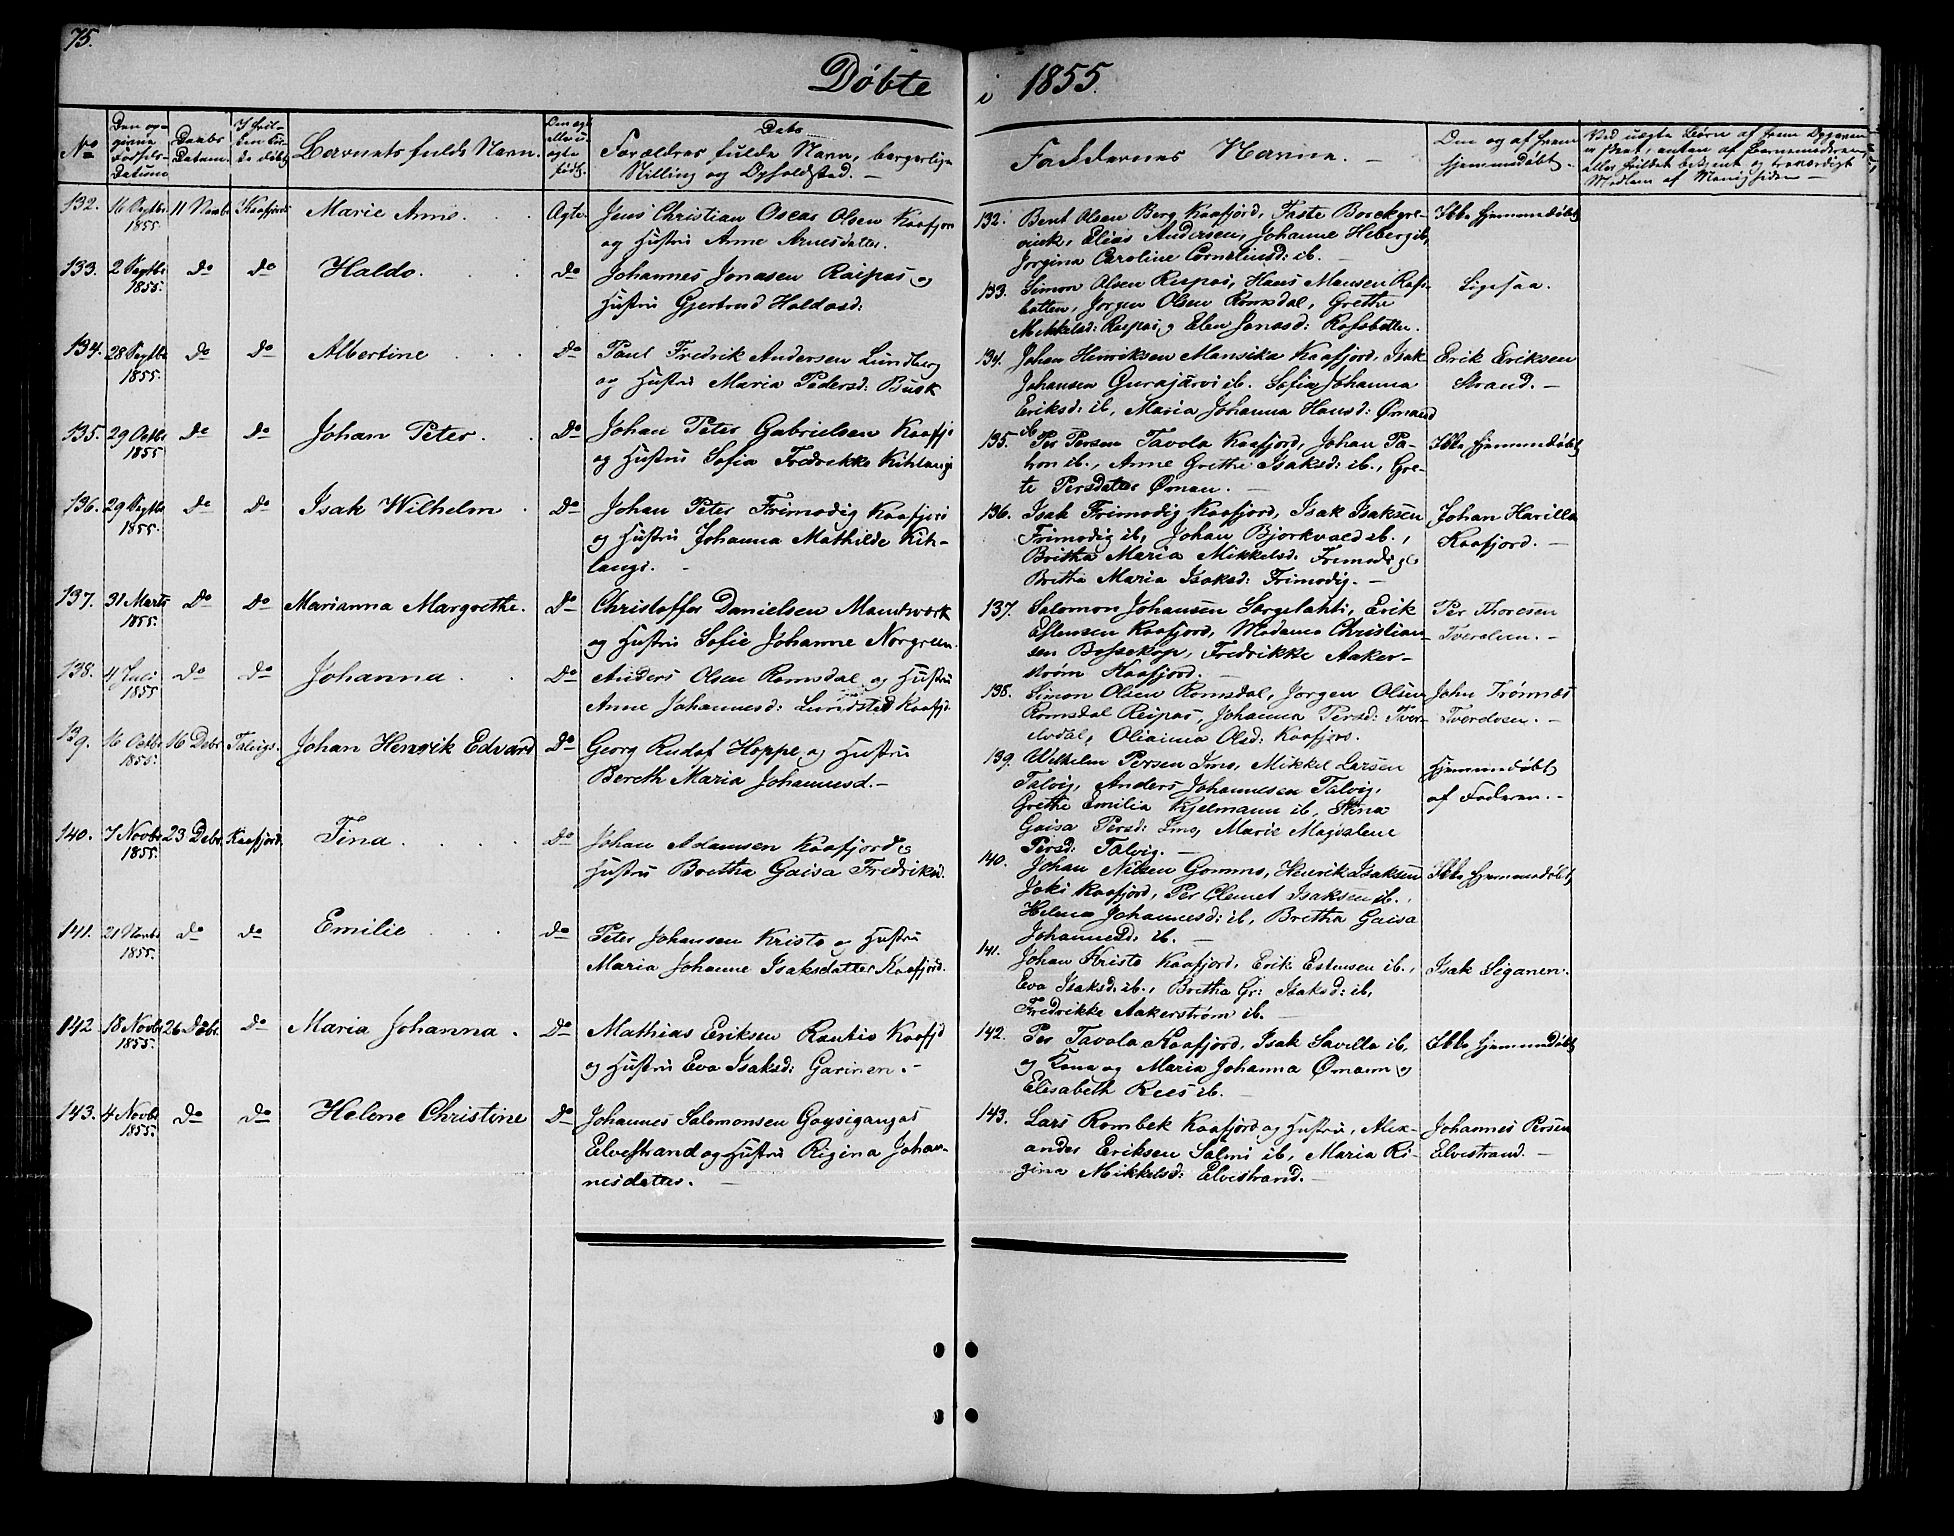 75.
Döbte i 1855.
No
Den op-
givne
Fødsels-
Datum
Daabs
Datum.
I hvil-
ken Kir-
ke døbt
Barnets fulde Navn.
Om ægte
eller u-
ægte
født.
Dets
Forældres fulde Navn, borgerlige
Stilling og Opholdssted. —
Faddernes Navne. —
Om og af hvem
hjemmedøbt.
132. 16 Septbr 1855 11 Novbr Kaafjord Marie Anne. Ægte
Jens Christian Oscar Olsen Kaafjord
og Hustru Anne Arnesdatter.
132. Bent Olsen Berg Kaafjord, Faste Borckgre-
vink, Elias Andersen, Johanne Heberg ib,
Jorgina Caroline Corneliusd: ib. —
Ikke hjemmedøbt
133. 2 Septbr 1855. Do Do Haldo. Do
Johannes Jonasen Raipas og
Hustru Gjertrud Haldosd:
133. Simon Olsen Reipas, Hans Monsen Rafs-
botten, Jorgen Olsen Romsdal, Grethe
Mikkelsd: Reipas og Elen Jonasd: Rafsbotten.
Ligesaa.
134. 28 Septbr 1855. Do Do Albertine Do
Paul Fredrik Andersen Lundberg
og Hustru Maria Pedersd: Busk
134. Johan Henriksen Mansika Kaafjord, Isak
Johansen Gurajärvi ib. Sofia Johanna
Eriksd: ib, Maria Johanna Hansd: Ømand
ib
Erik Eriksen
Strand. —
135. 29 Octbr 1855 Do Do Johan Peter. Do
Johan Peter Gabrielsen Kaafjo
og Hustru Sofia Fredrikke Kihlangi
135. Per Persen Tavola Kaafjord, Johan Pa-
hon ib., Anne Grethe Isaksd: ib., Gre-
te Persdatter Øman. —
Ikke hjemmedøbt
136. 29 Septbr 1855. Do Do Isak Wilhelm Do
Johan Peter Frimodig Kaafjord
og Hustru Johanna Mathilde Kih-
langi. —
136. Isak Frimodig Kaafjord, Isak Isaksen
Frimodig ib, Johan Bjorkvald ib.,
Britha Maria Mikkelsd. Frimodig
Britha Maria Isaksd: Frimodig. —
Johan Havilla
Kaafjord. —
137. 31 Marts 1855. Do Do Marianna Margrethe. Do
Christoffer Danielsen Mamtværk
og Hustru Sofie Johanne Norgreen.
137. Salomon Johansen Sorgelahti, Erik
Estensen Kaafjord, Madame Christian-
sen Bossekop, Fredrikke Aaker-
strøm Kaafjord. —
Per Thoresen
Tverelven. —
138. 4 Juli 1855 Do Do Johanna Do
Anders Olsen Romsdal og Hustru
Anne Johannesd: Lundsted Kaafjd.
138. Simon Olsen Romsdal, Jorgen Olsen
Romsdal Reipas, Johanna Persd: Tver-
elvdal, Olianna Olsd: Kaafjord.
John Trømnæs
Tverelven. —
139. 16 Octbr 1855. 16 Debr Talvigs Johan Henrik Edvard Do
Georg Rudof Hoppe og Hustru
Bereth Maria Johannesd. —
139. Wilhelm Persen Imo, Mikkel Larsen
Talvig, Anders Johannesen Talvig,
Grethe Emilia Kjelmann ib, Stina
Gaisa Persd: Imo, Marie Magdalene
Persd: Talvig. —
Hjemmedøbt
af Faderen. —
140. 7 Novbr 1855. 23 Debr Kaafjord. Tina Do
Johan Adamsen Kaafjord og
Hustru Bretha Gaisa Fredriksd.
140. Johan Nilsen Gommo, Henrik Isaksen
Joki Kaafjord, Per Clemet Isaksen ib.,
Helena Johannesd: ib, Bretha Gaisa
Johannesd: ib. —
Ikke hjemmedøbt
141. 21 Novbr 1855. Do Do Emilie Do
Peter Johansen Kristo og Hustru
Maria Johanne Isaksdatter Kaafjord.
141. Johan Kristo Kaafjord, Erik Estensen ib.,
Eva Isaksd: ib., Bretha Gr: Isaksd: ib,
Fredrikke Aakerstrøm ib. —
Isak Siganen.
142 18 Novbr 1855. 26 Debr. Do Maria Johanna. Do
Mathias Eriksen Rautio Kaafjd
og Hustru Eva Isaksd: Garinen. —
142. Per Tavola Kaafjord, Isak Savilla ib,
og Kona og Maria Johanna Ømann og
Elisabeth Rees ib. —
Ikke hjemmedøbt
143. 4 Novbr 1855. Do Do Helene Christine Do
Johannes Salomonsen Goysigangas
Elvestrand og Hustru Regina Johan-
nesdatter. —
143. Lars Rombek Kaafjord og Hustru, Alex-
ander Eriksen Salmi ib, Maria Ri-
gina Mikkelsd: Elvestrand. —
Johannes Persen
Elvestrand. —